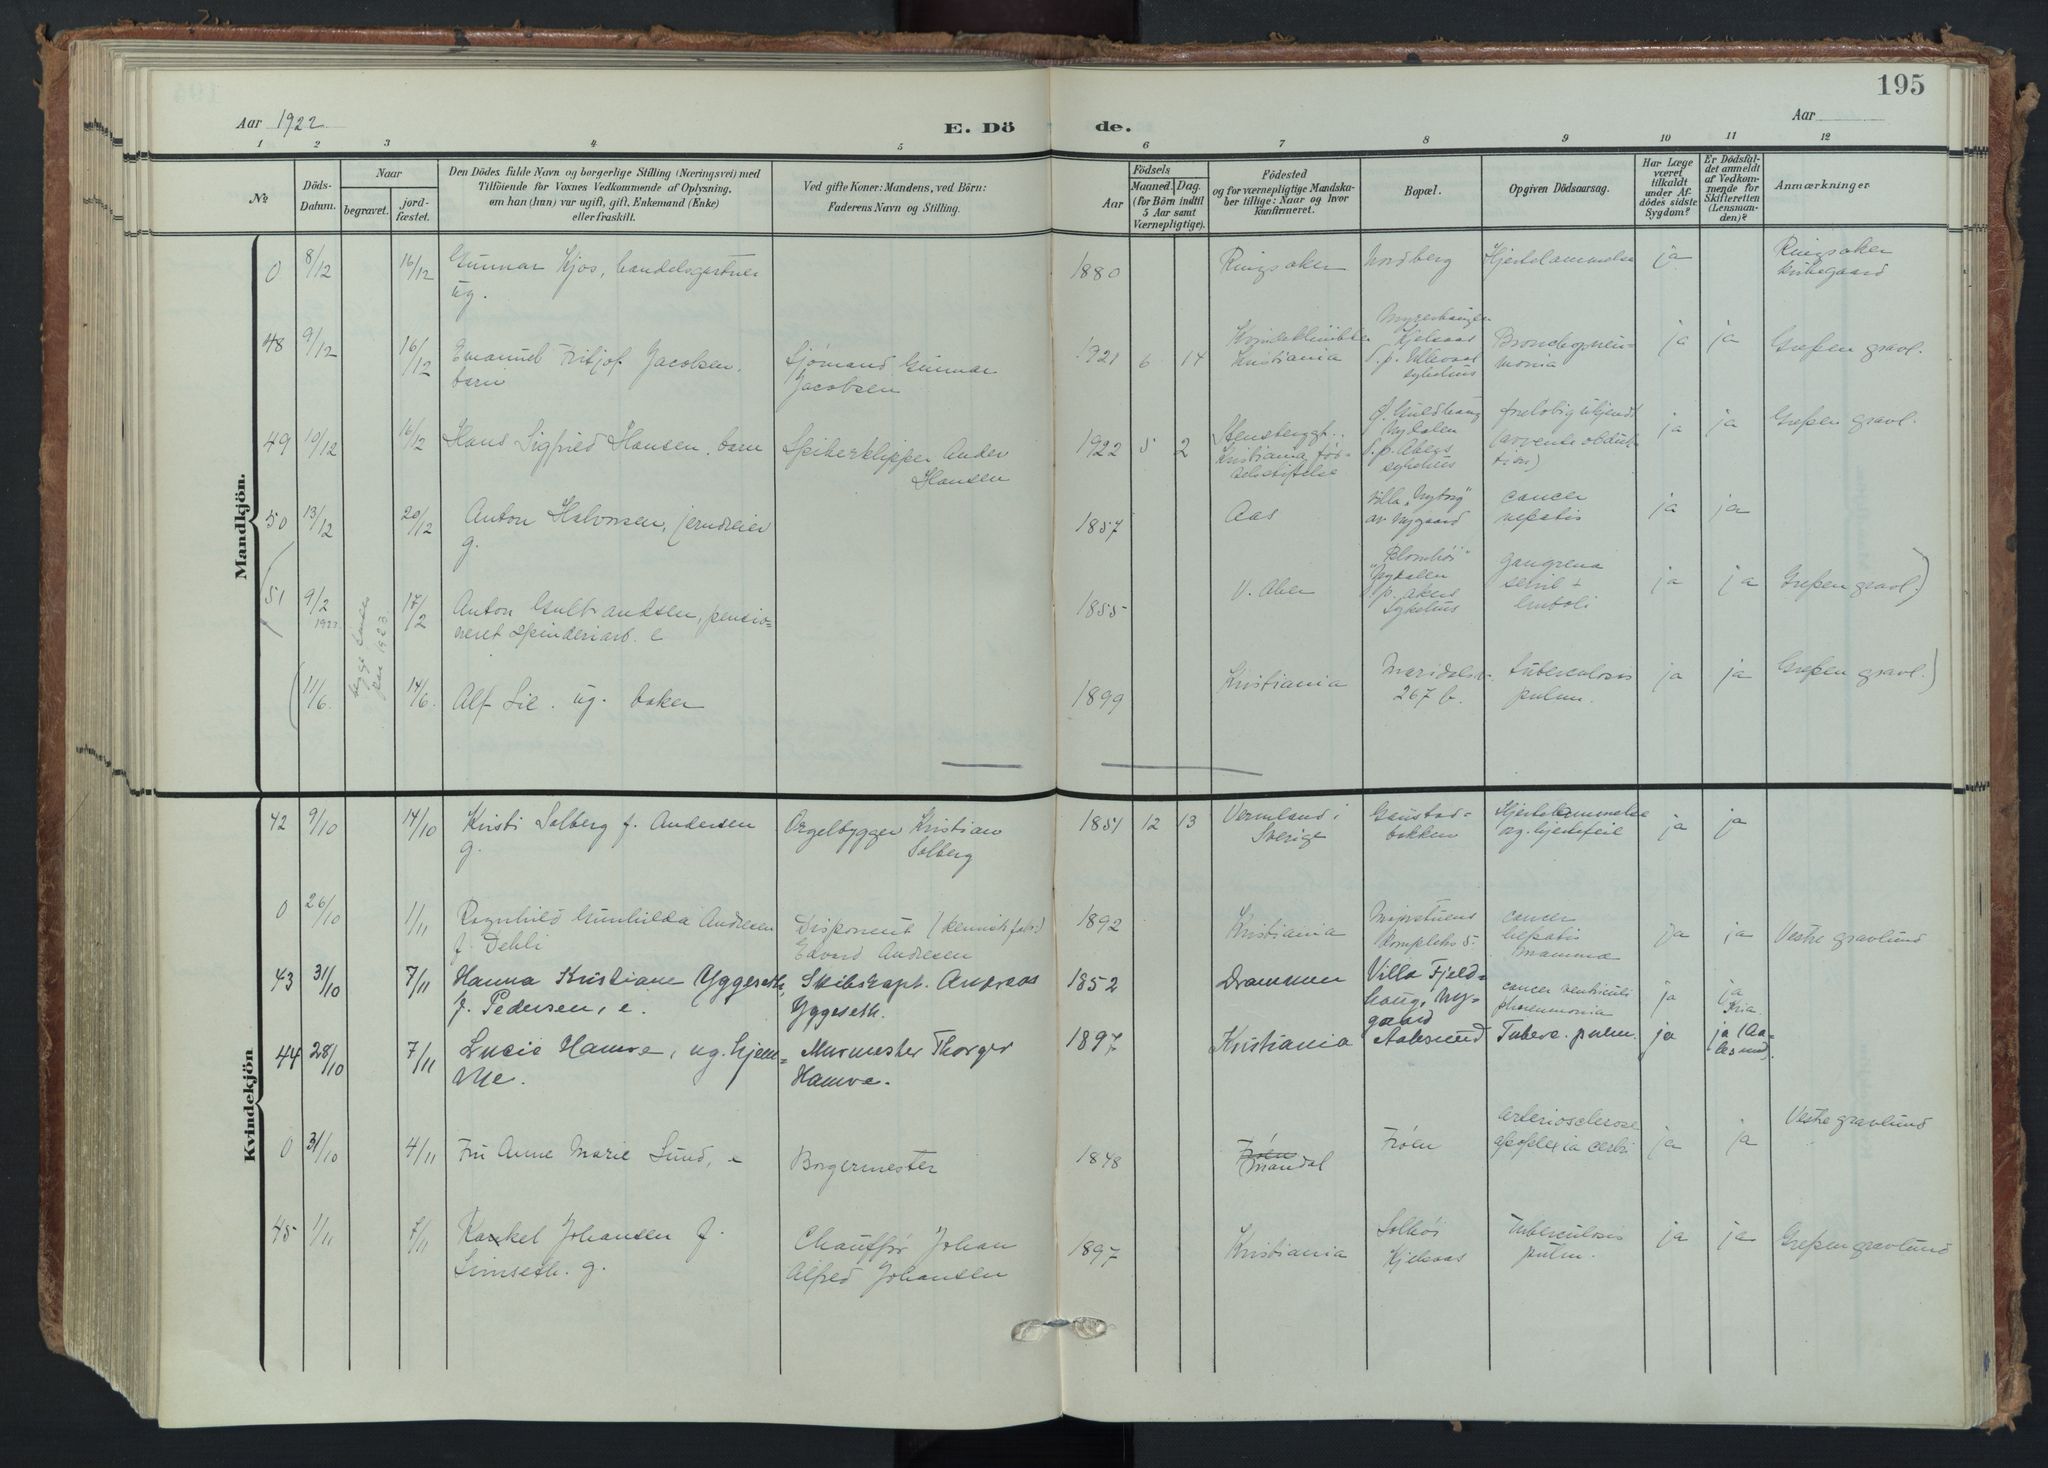 195
Aar 1922
E. Dö
de.
Aar
1 2 3 4 5 6 7 8 9 10 11 12
No.
Döds-
Datum.
Naar
begravet.
jord-
fæstet.
Den Dödes fulde Navn og borgerlige Stilling (Næringsvei) med
Tilföiende for Voxnes Vedkommende af Oplysning,
om han (hun) var ugift, gift, Enkemand (Enke)
eller fraskilt.
Ved gifte Koner: Mandens, ved Börn:
Faderens Navn og Stilling.
Födsels
Aar
Maaned. Dag.
(for Börn indtil
5 Aar samt
Værnepligtige).
Födested
og for værnepligtige Mandska-
ber tillige: Naar og hvor
konfirmeret.
Bopæl.
Opgiven Dödsaarsag.
Har Læge
været
tilkaldt
under Af-
dödes sidste
Sygdom?
Er Dödsfal-
det anmeldt
af Vedkom-
mende for
Skifteretten
(Lensman-
den)?
Anmærkninger
Mandkjön.
0 8/12 16/12 Gunnar Kjos, handelsgartner
ug.
1880 Ringsaker Nordberg Hjertelammelse ja Ringsaker
kirkegaard
48 9/12 16/12 Emanuel Fritjof Jacobsen.
barn
Sjømand Gunnar
Jacobsen
1921 6 14 Kvindeklinikken
Kristiania
Kjelsaas
d.p. Ullevaal
sykehus
Bronchopneu-
monia
ja ja Grefsen gravl.
49 10/12 16/12 Hans Sigfried Hansen. barn
Spikerklipper Anders
Hansen
1922 5 2 Stensberggt.
Kristiania fød-
selsstiftelse
Nydalen
d.p. Akers
sykehus
foreløbig ukjendt
(avvente obduk-
tion)
ja ja Grefsen gravl.
50 13/12 20/12 Anton Halvorsen, jerndreier
g.
1857 Aas Villa "Nytorg"
av Nygaard
cancer
hepatis
ja ja
(51 9/2
1923
17/2 Anton Gulbrandsen, pensio-
neret spinderiarb. e
1855 V. Aker "Blomhøi"
Nydalen
d.p. Akers
Sykehus
gangrena
senil +
emboli
ja ja Grefsen gravl.)
(11/6. 14/6. Alf Lie. ug. baker
1899 Kristiania Maridalsv.
267 b.
tuberculosis
pulm.
ja ja Grefsen gravl.)
Kvindekjön
42 9/10 14/10 Kristi Solberg f. Andersen
g.
Orgelbygger Kristian
Solberg
1851 12 13 Vermland i
Sverige
Gaustad-
bakken
Hjertelammelse
og hjertefeil
ja ja
0 26/10 1/11 Ragnhild Gunhilda Andresen
f. Dehli
Disponent (kemisk fabr.)
Edvard Andresen
1892 Kristiania Majorstuens
kompleks 5.
cancer
hepatis
mamma
ja ja Vestre gravlund
43 31/10 7/11 Hanna Kristiane Yggeseth,
f. Pedersen, e.
Skibskapt. Andreas
Yggeseth.
1852 Drammen Villa Fjeld-
haug, Ny-
gaard
cancer ventriculi
pneumonia
ja ja
Kria.
44 28/10 7/11 Lucie Hamre, ug. hjem-
me.
Murmester Thorger
Hamre.
1897 Kristiania Aalesund Tuberc. pulm. ja ja (Aa-
lesund).
0 31/10 4/11 Fru Anne Marie Lund, e
Borgermester
1848 Frøen
Mandal
Frøen arteriosclerose
apoplexia cerebri
ja ja Vestre gravlund
45 1/11 7/11 Johansen f.
Simseth. g.
Chauffør Johan
Alfred Johansen
1897 Kristiania Solhøi
Kjelsaas
tuberculosis
pulm.
ja ja Grefsen gravlund